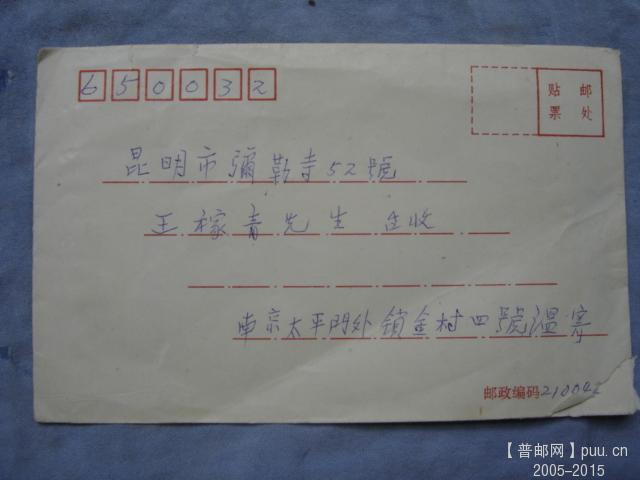 650032
贴 邮
票 处
昆明市彌勒寺52號
王稼青先生 台收
南京太平門外锁金村四號温寄
邮政编码210042
【普邮网】puu.cn
2005-2015